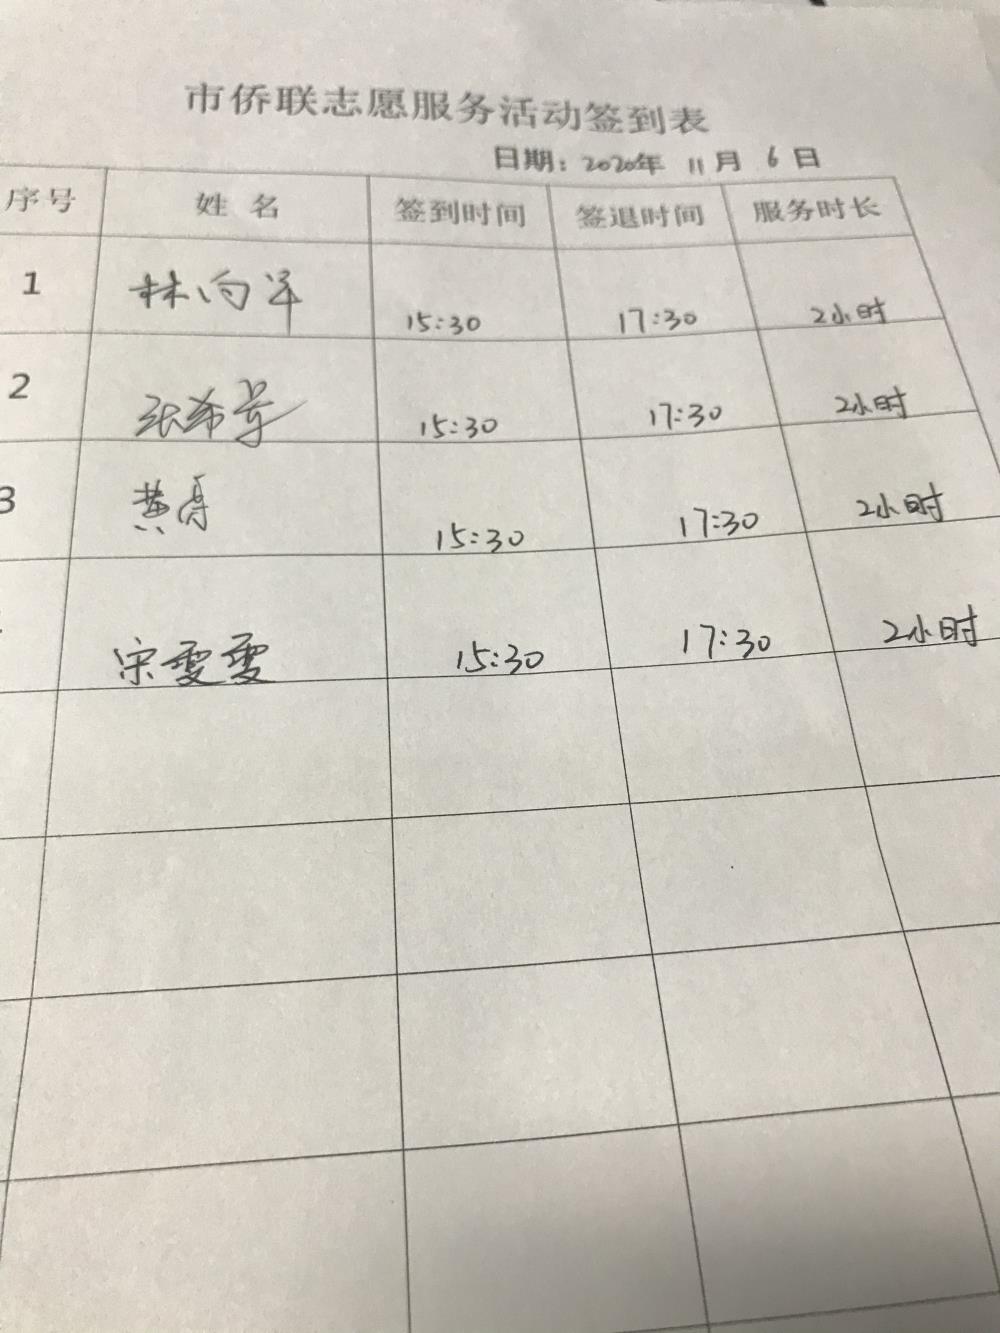 市侨联志愿服务活动签到表
日期：2020年 11月 6日
序号 姓 名 签到时间 签退时间 服务时长
1 林向洋 15:30 17:30 2小时
2 张希 15:30 17:30 2小时
3 黄 15:30 17:30 2小时
宋雯雯 15:30 17:30 2小时